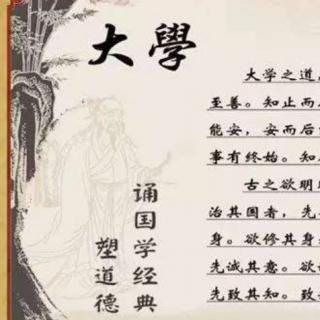 大學
大学之道，
至善。知止而后
能安，安而后
事有终始。知
古之欲明明
治其国者，先
身。欲修其身
先诚其意。欲
先致其知。致
诵国学经典
塑道德